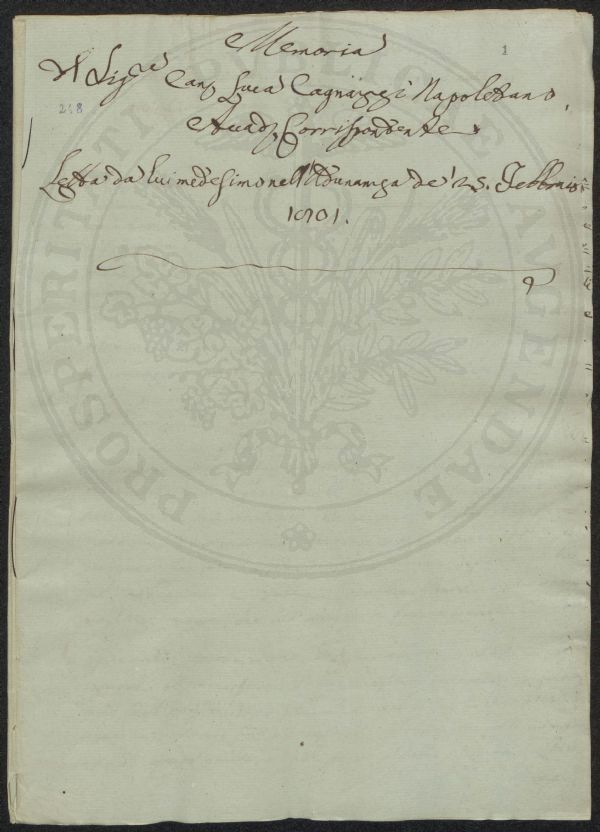 Memoria
1
Del Sig.re Can.o Luca Cagnazzi Napoletano,
248
Accad.o Corrispondente
Letta da lui medesimo nell'Adunanza de' 25. Febbraio
1801.
PROSPERITATI PUBLICAE AUGENDAE